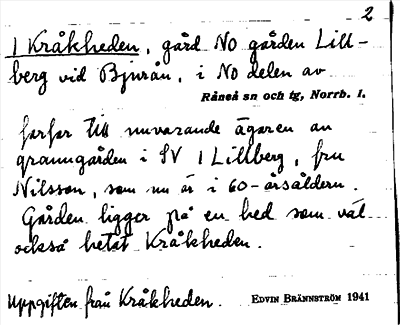 2
1 Kråkheden, gård NO gården Lill-
berg vid Bjurån, i NO delen av
Råneå sn och tg, Norrb. l.
farfar till nuvarande ägaren av
granngården i SV 1 Lillberg, fru
Nilsson, som nu är i 60-årsåldern.
Gården ligger på en hed som väl
också hetat Kråkheden.
Uppgiften från Kråkheden. EDVIN BRÄNNSTRÖM 1941